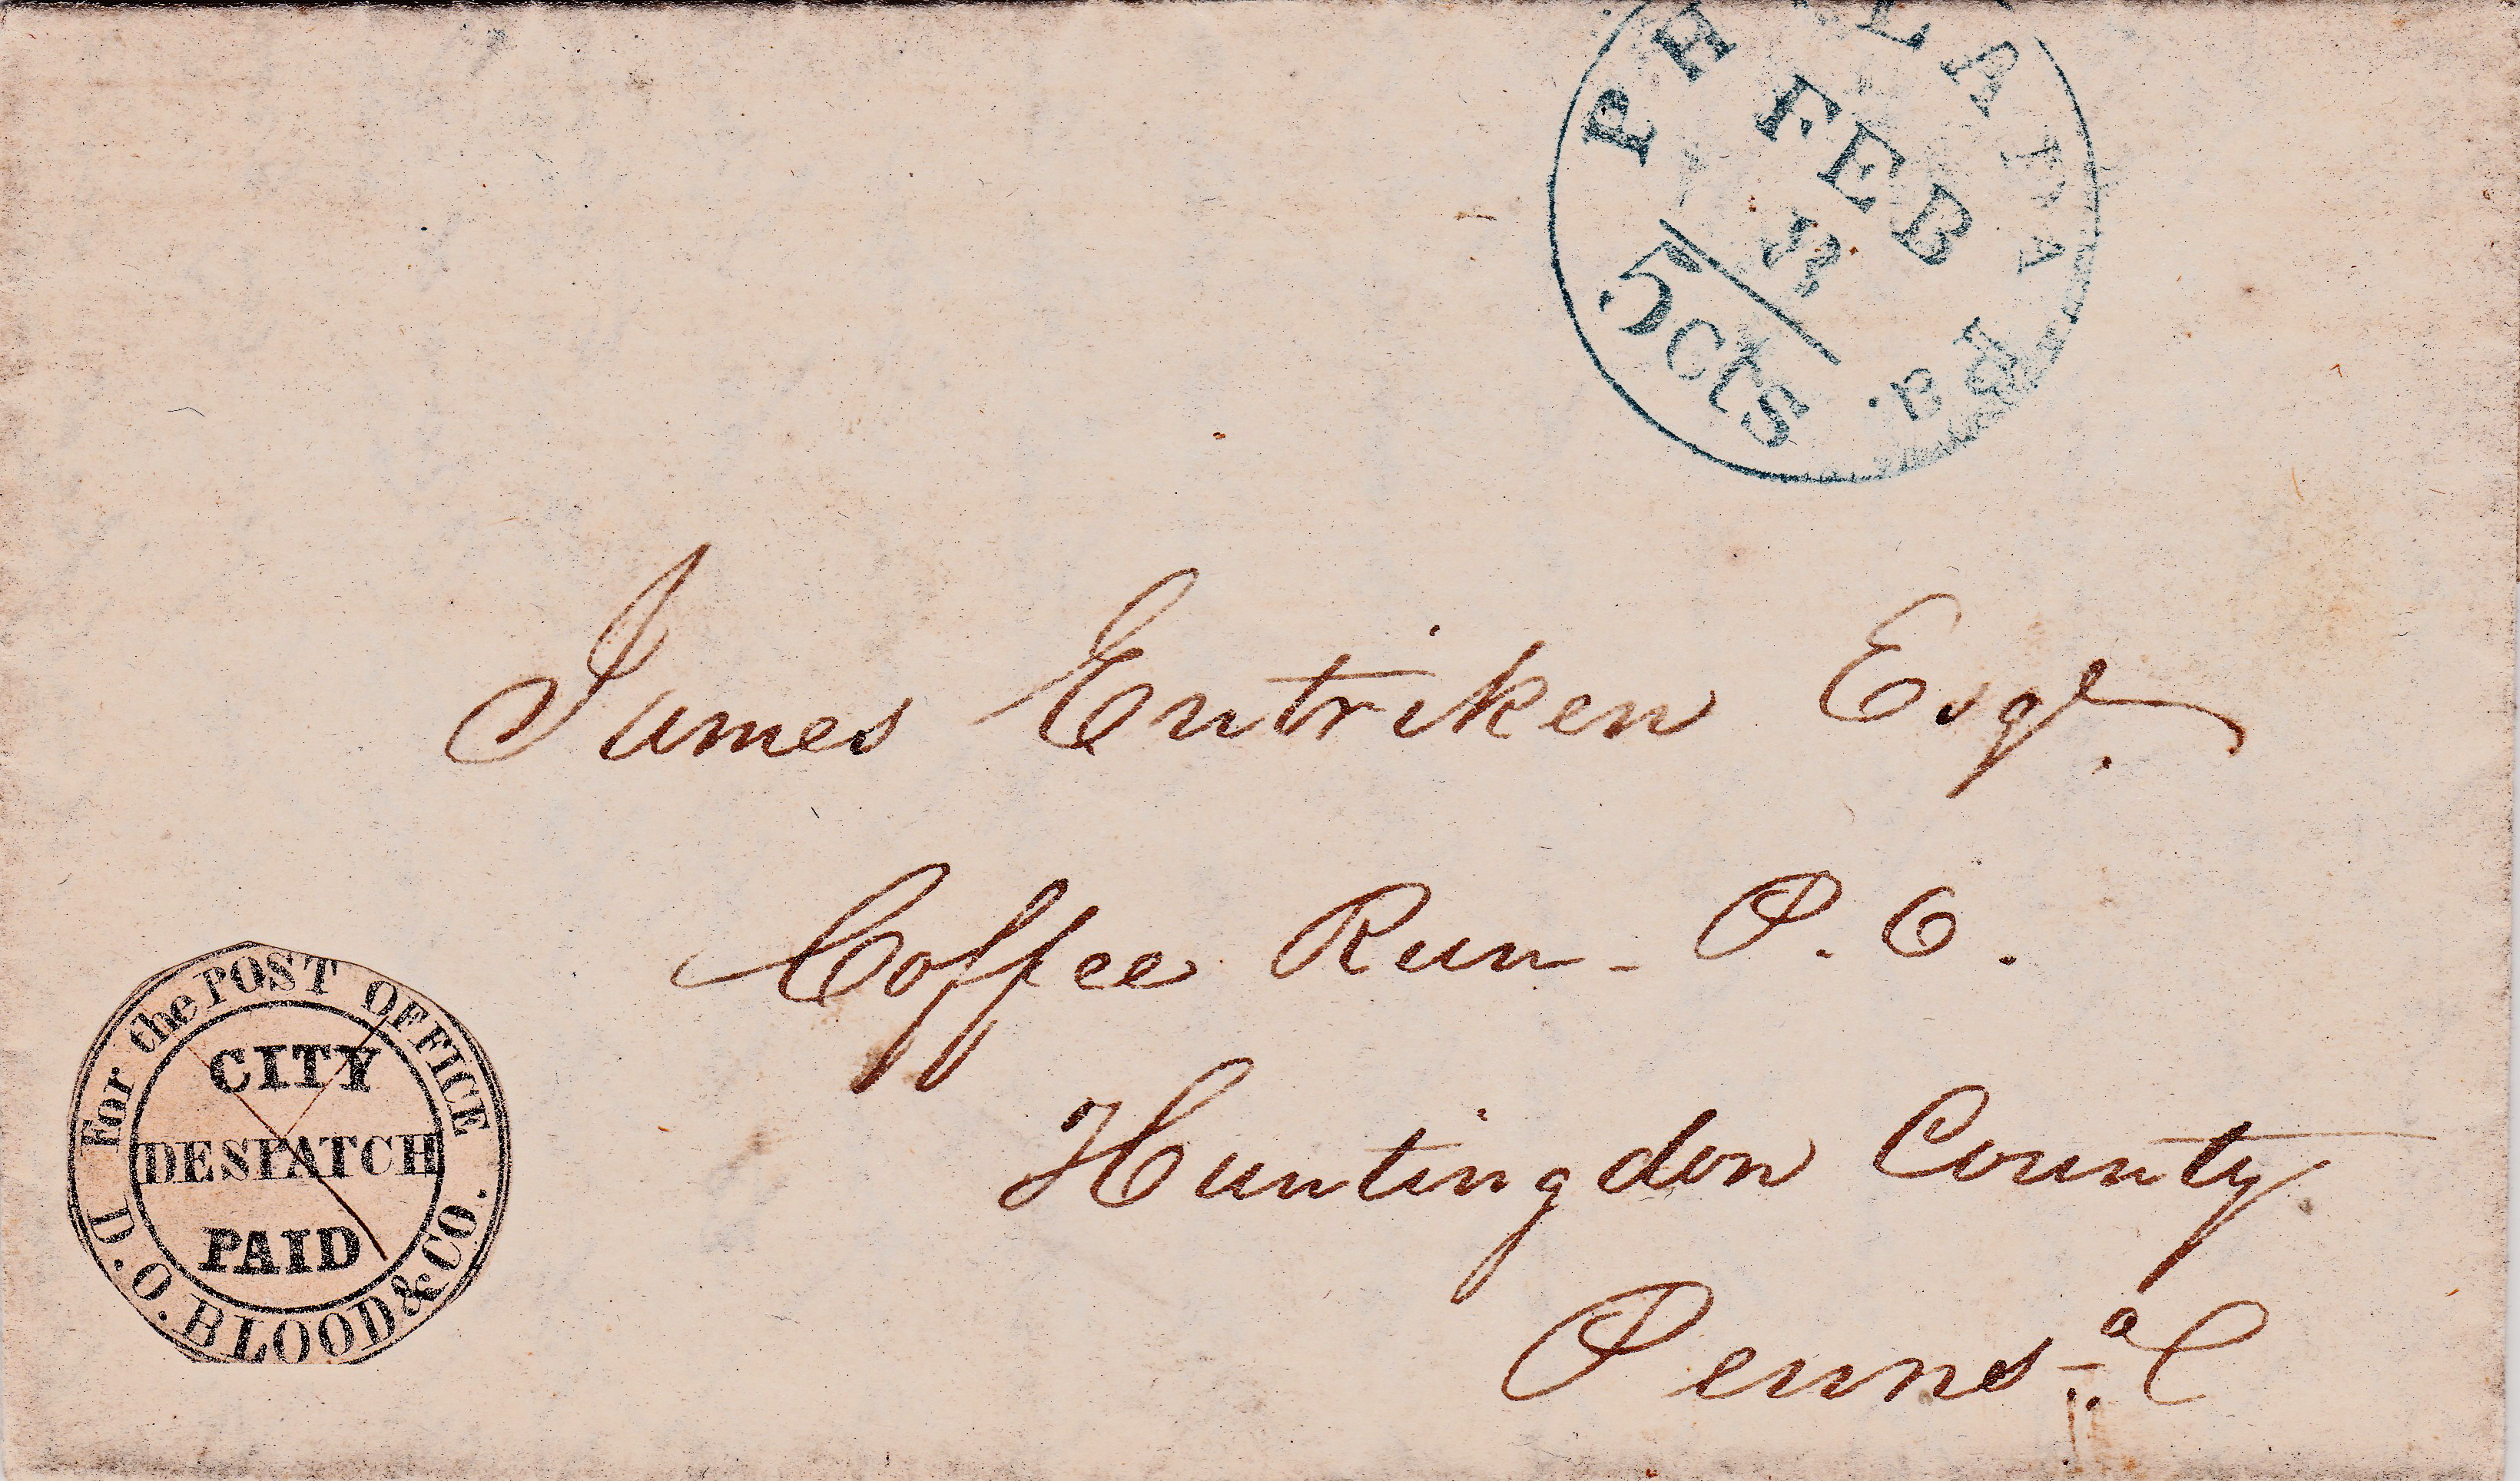 PHILADA
FEB
5cts
Pa.
James Entriken Esqr.
Coffee Run - P. O.
Huntingdon County
Penns.a
For the POST OFFICE
CITY
DESPATCH
PAID
D.O. BLOOD & CO.